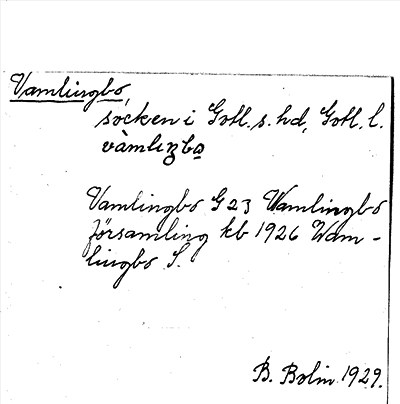 Vamlingbo,
socken i Gotl. s. hd, Gotl. l.
vàmlıŋbo
Vamlingbo G 23 Wamlingbo
församling kb 1926 Wam-
lingbo S.
B. Bolin 1929.